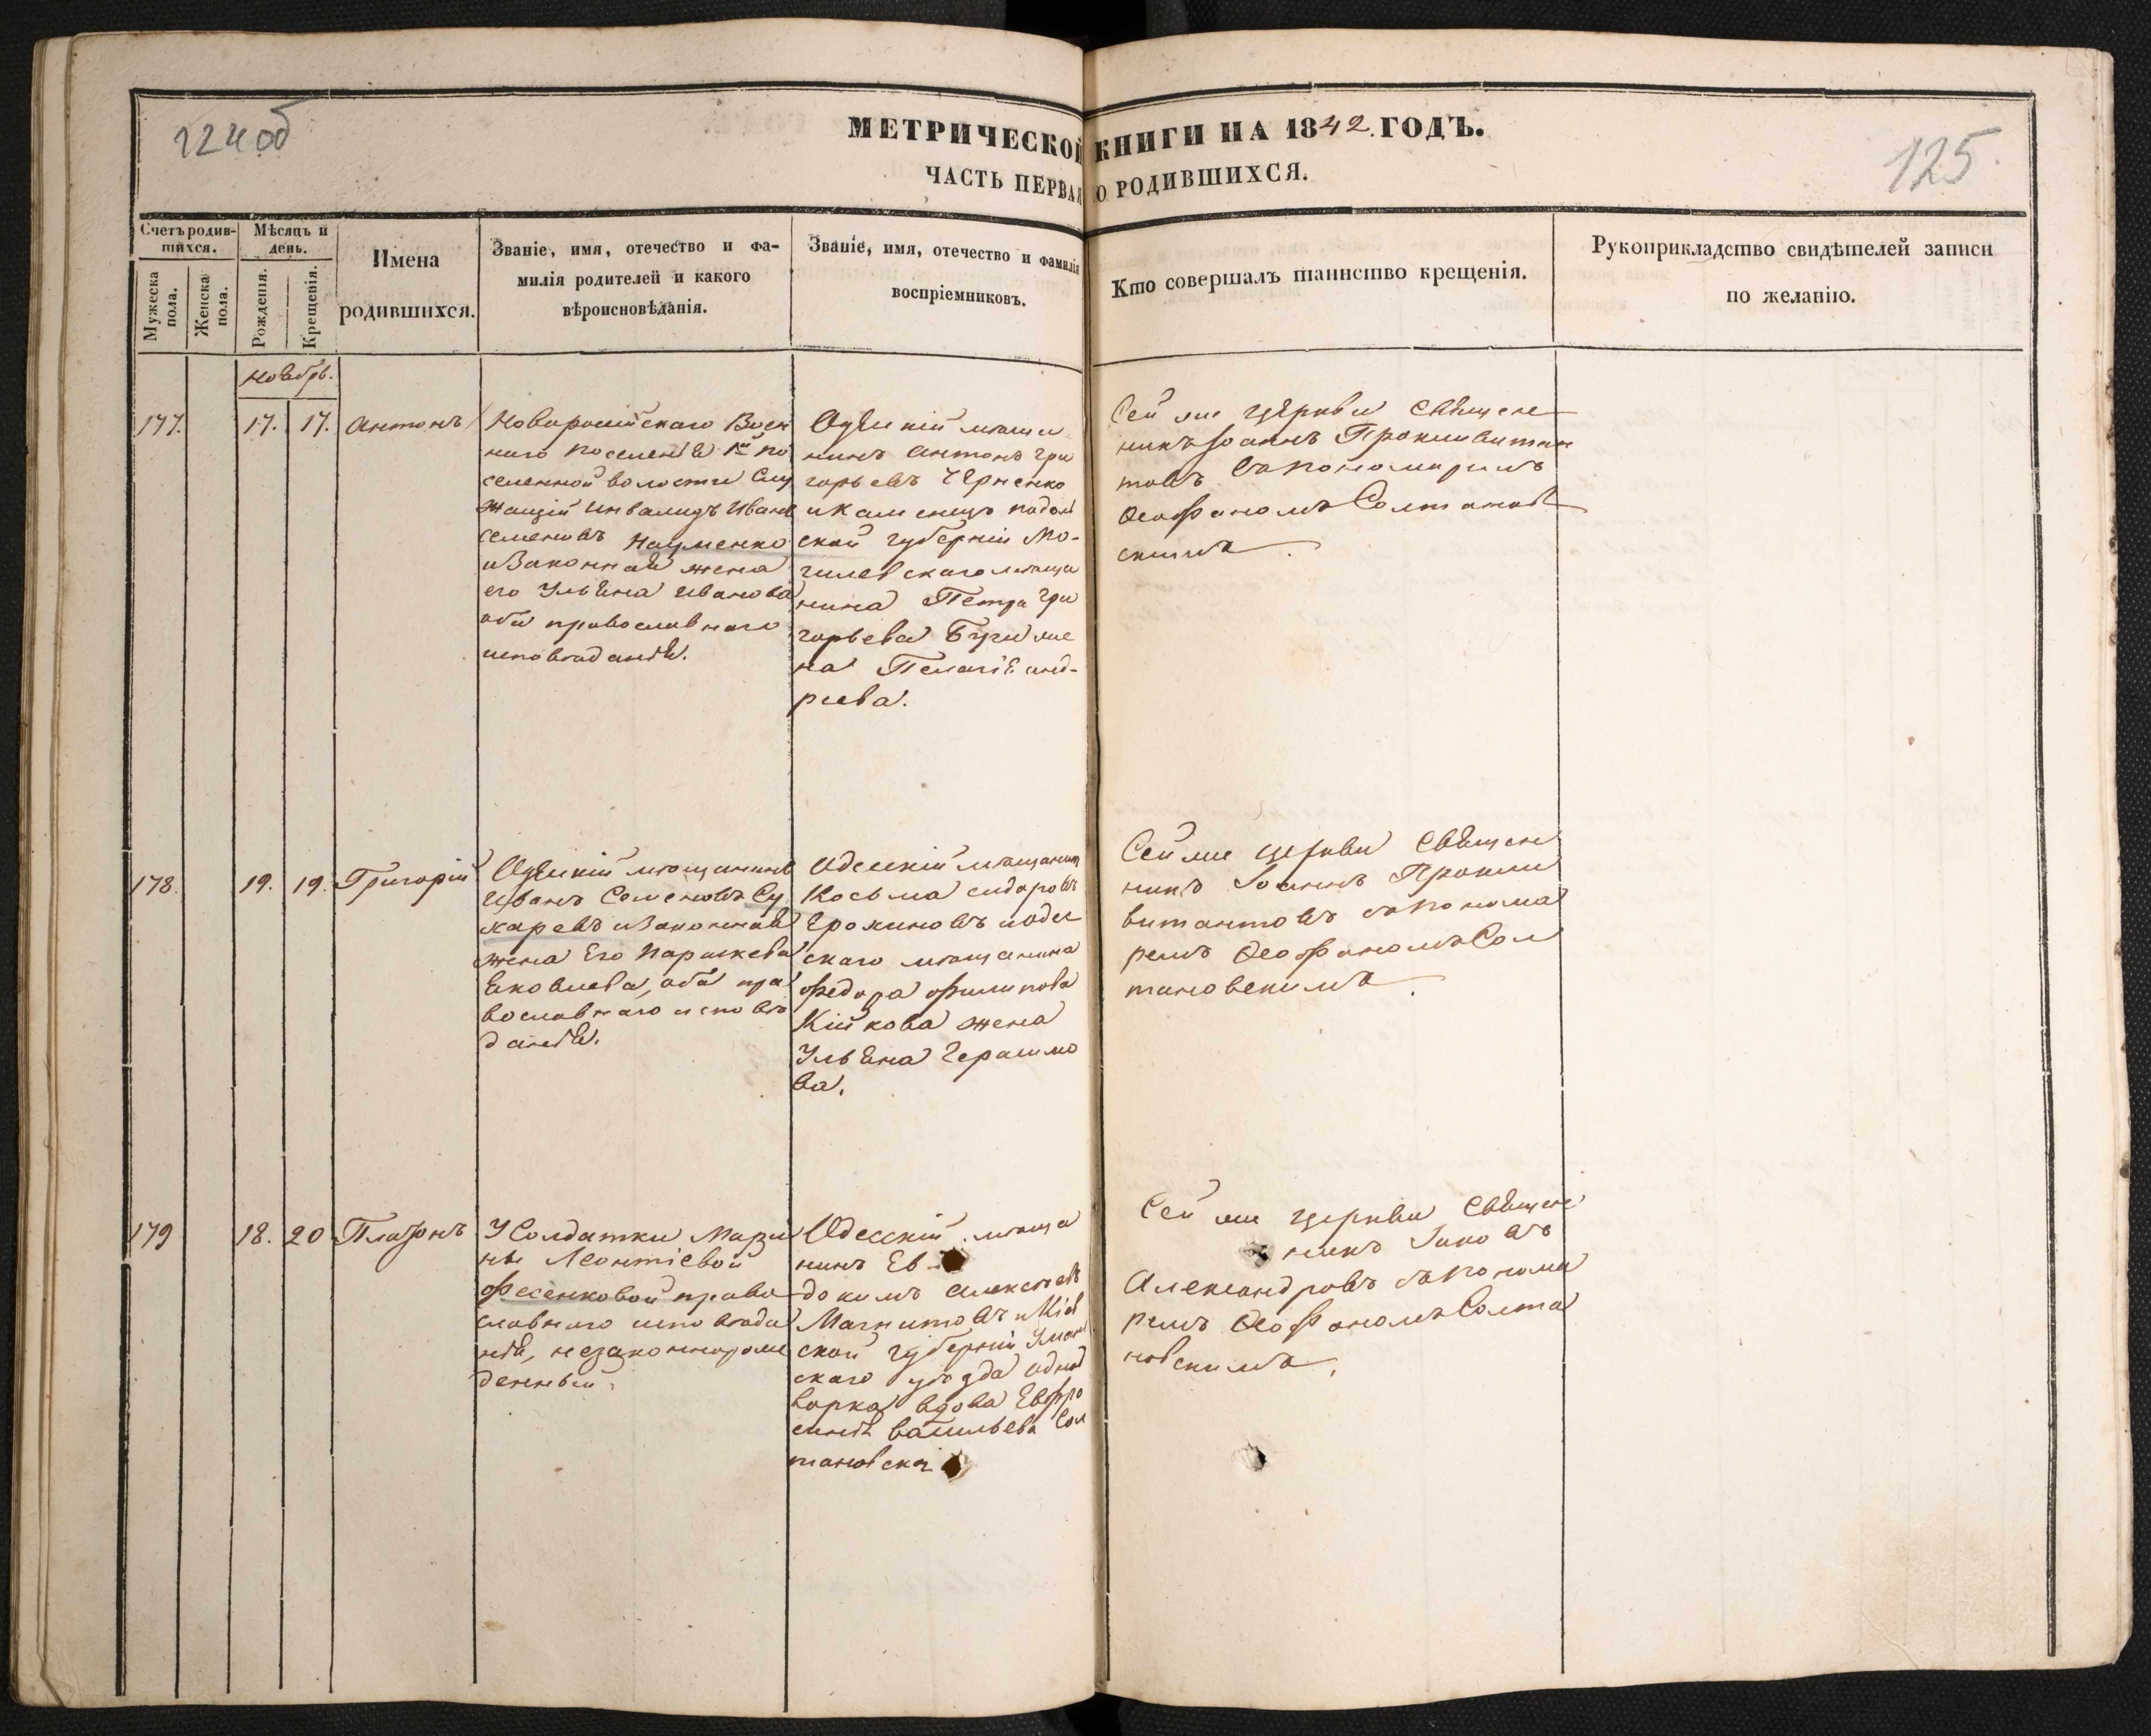 124 об
МЕТРИЧЕСКОЙ КНИГИ НА 1842. ГОДЪ.
125
ЧАСТЬ ПЕРВАЯ О РОДИВШИХСЯ.
Счетъ родив-
шихся.
Мужеска
пола.
Женска
пола.
Мѣсяцъ и
день.
Рожденія.
Крещенія.
Имена
родившихся.
Званіе, имя, отечество и фа-
милія родителей и какого
вѣроисновѣданія.
Званіе, имя, отечество и фамилія
воспріемниковъ.
Кто совершалъ таинство крещенія.
Рукоприкладство свидѣтелей записи
по желанію.
Ноябрь.
177.
17.
17.
Антонъ
Новоросійскаго Воен
наго поселенія 1й по
селенной волости Слу
жащій инвалидъ Иванъ
Семеновъ Науменко
и Законная жена
его Ульяна Иванова
оба православнаго
исповѣданія.
Одескій мѣща
нинъ Антонъ Гри
горьевъ Черненко
и Каменецъ подол
ской губерніи Мо-
гилевскаго мѣща
нина Петра Гри
горьева
на Пелагія Анд-
реева.
Сей же церкви Священ
никъ Іоаннъ Проки
товъ съ пономаремъ
Ѳеофаномъ Солтанов
скимъ.
178.
19.
19.
Григорій
Одескій мѣщанинъ
Иванъ Семеновъ Су
харевъ и Законная
жена Его Параскева
Яковлева, оба пра
вославнаго исповѣ
данія.
Одескій мѣщанинъ
Косьма Сидоровъ
Ерохиновъ и одес
скаго мѣщанина
Федора Филипова
Кійкова жена
Ульяна Герасимо
ва.
Сей же церкви Священ
никъ Іоаннъ Проки
съ понома
ремъ Ѳеофаномъ Сол
тановскимъ.
179
18.
20
Платонъ
У Солдатки Мари
ны Леонтіевой
Фесенковой право
славнаго исповѣда
нія, незаконнорож
денный.
Одесскій мѣща
нинъ Ев-
докимъ Алексѣевъ
Магнитовъ и Кіев
ской губерніи Уман
скаго уѣзда однод
ворка вдова Евфро
синія Васильева Сол
тановска
Сей же церкви Священ
никъ Іаковъ
Александровъ съ понома
ремъ Ѳеофаномъ Солта
новскимъ.